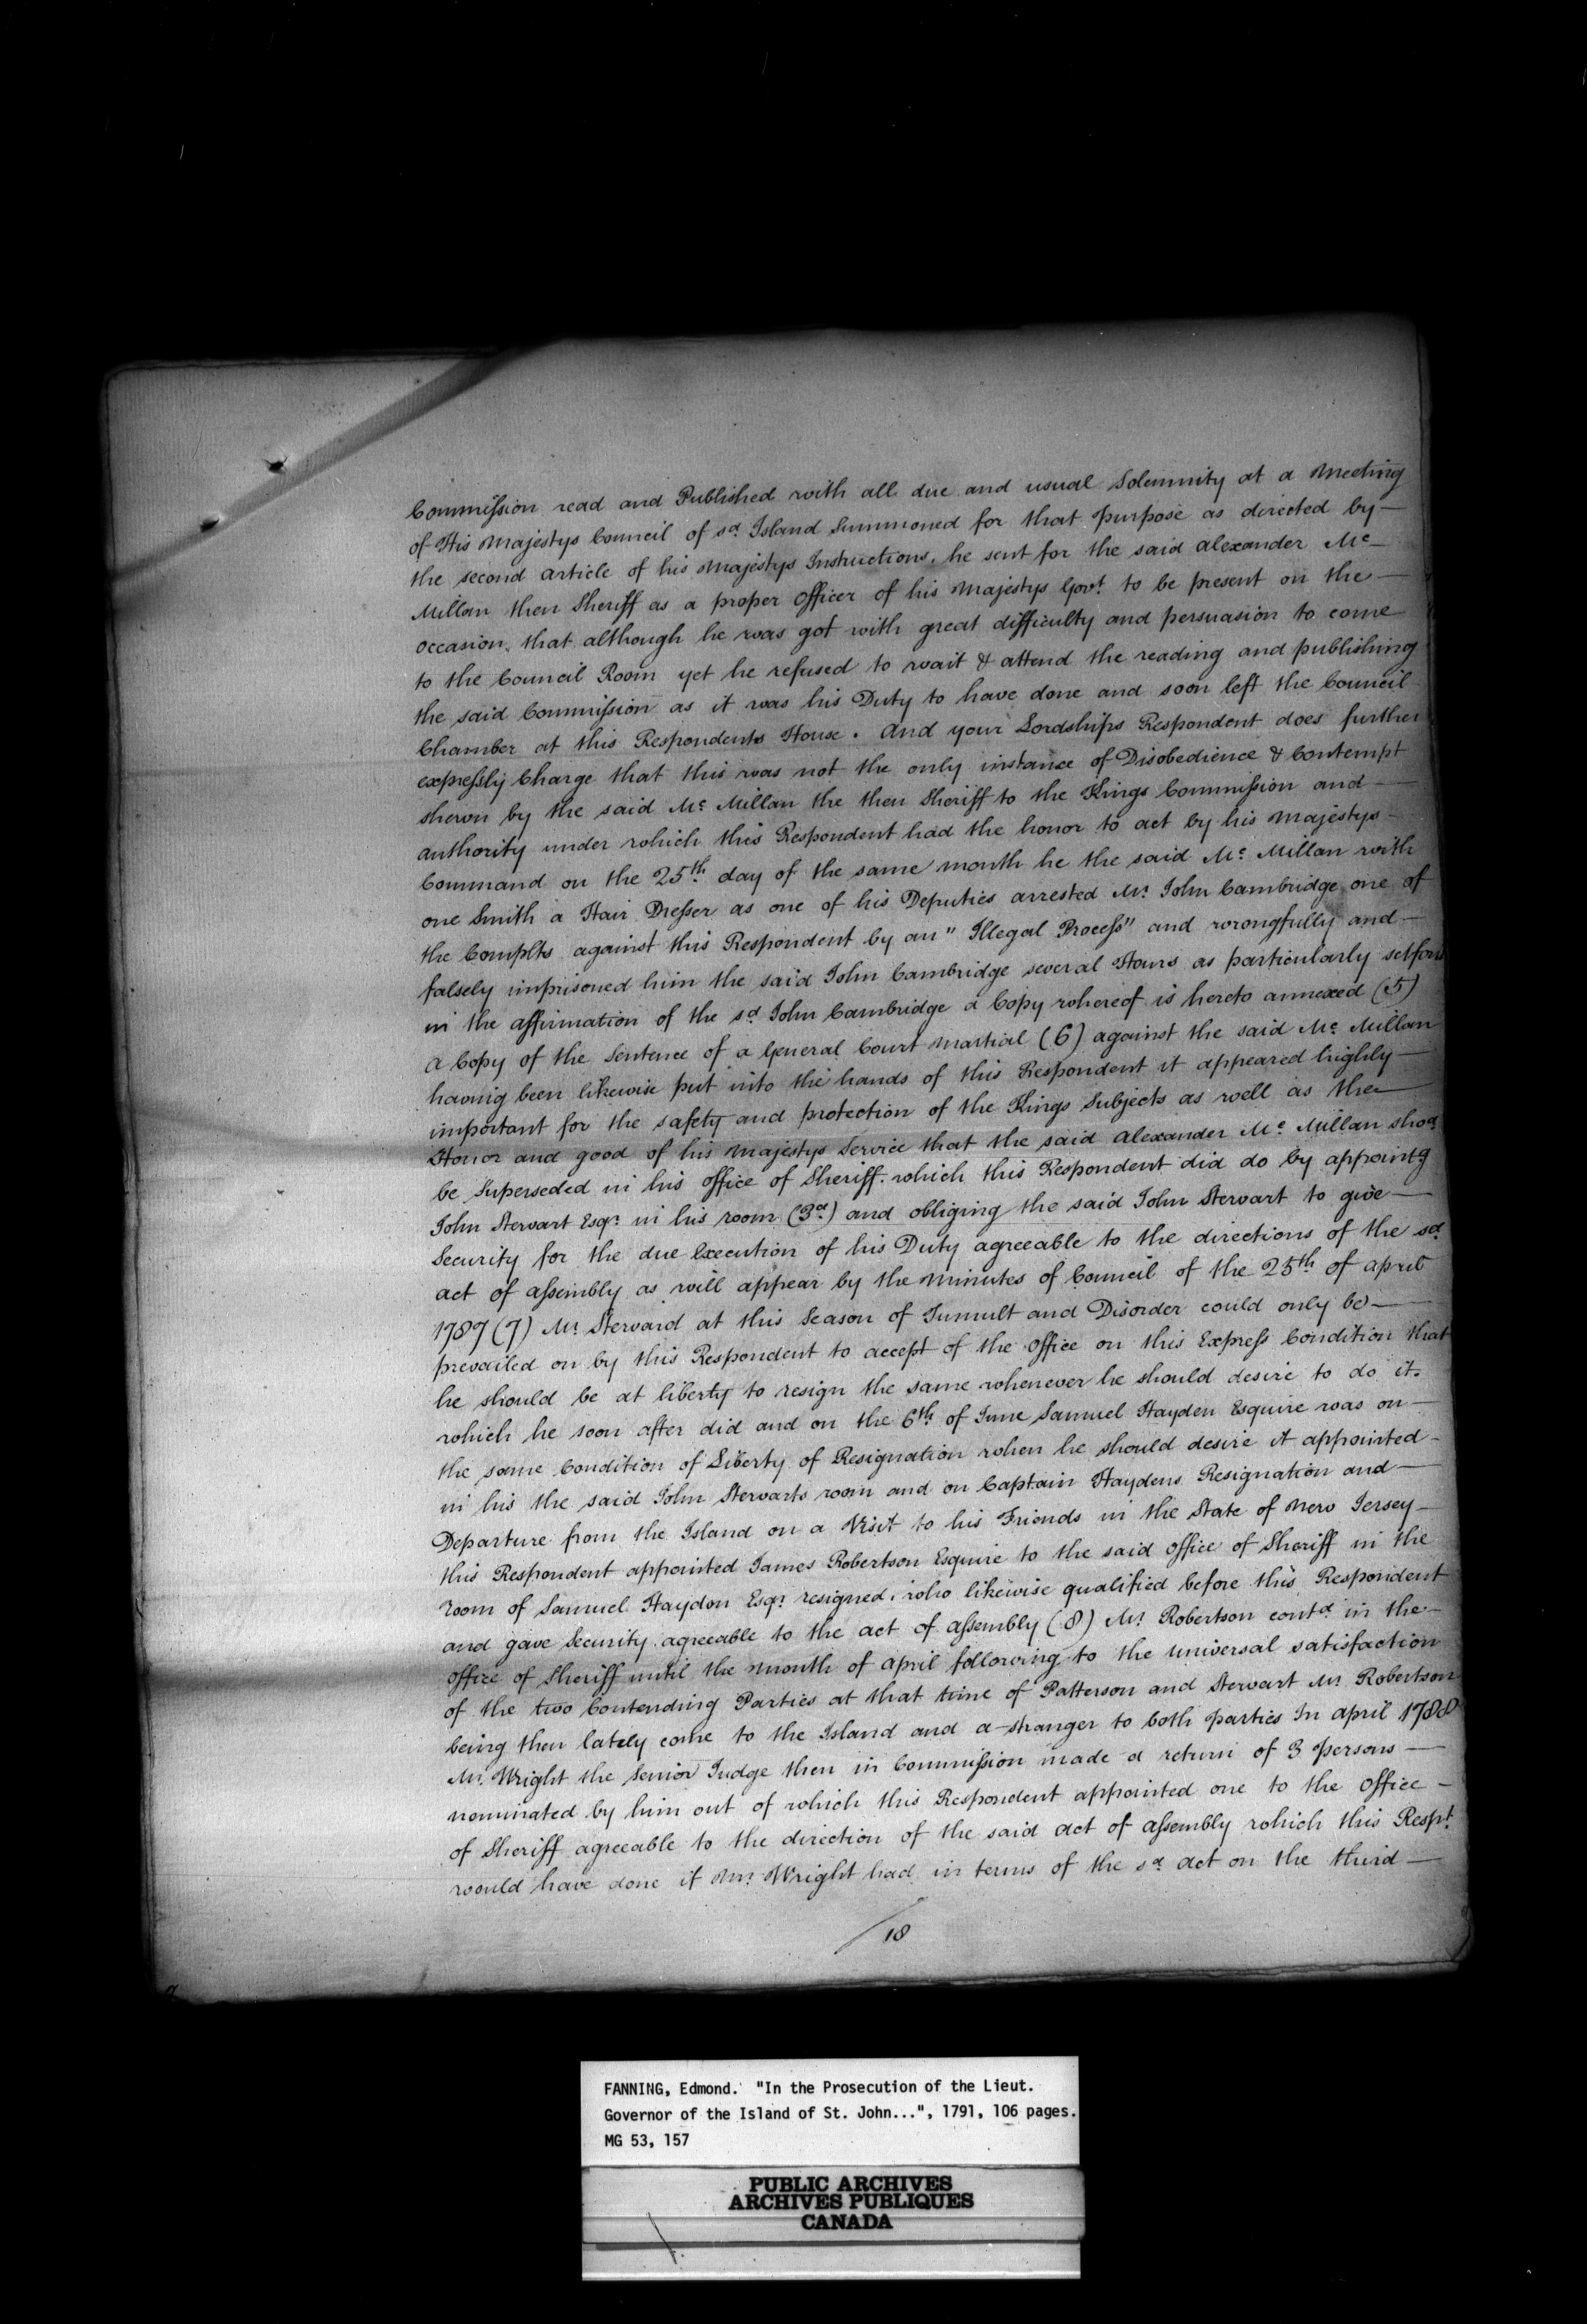 Commission read and Published with all due and usual Solemnity at a Meeting
of His Majestys Council of sd Island Summoned for that purpose as directed by —
the second article of his Majestys Instructions, he sent for the said Alexander Mc —
Millan then Sheriff as a proper Officer of his Majestys Govt. to be present on the —
occasion, that although he was got with great difficulty and persuasion to come
to the Council Room yet he refused to wait & attend the reading and publishing
the said Commission as it was his Duty to have done and soon left the Council
Chamber at this Respondents House. And your Lordships Respondent does further
expressly Charge that this was not the only instance of Disobedience & Contempt
shewn by the said Mc. Millan the then Sheriff to the Kings Commission and —
authority under which this Respondent had the honor to act by his Majestys —
Command on the 25th. day of the same month he the said Mc. Millan with
one Smith a Hair Dresser as one of his Deputies arrested Mr. John Cambridge one of
the Complts against this Respondent by an "Illegal Process" and wrongfully and —
falsely imprisoned him the said John Cambridge several Hours as particularly setforth
in the affirmation of the sd. John Cambridge a Copy whereof is hereto annexed (5)
A Copy of the Sentence of a General Court Martial (6) against the said Mc. Millan
having been likewise put into the hands of this Respondent it appeared highly —
important for the safety and protection of the Kings Subjects as well as the —
Honor and good of his Majestys Service that the said Alexander Mc. Millan shod.
be Superseded in his office of Sheriff. which this Respondent did do by appointg
John Stewart Esqr. in his room (3d.) and obliging the said John Stewart to give —
Security for the due Execution of his Duty agreeable to the directions of the sd.
act of assembly as will appear by the Minutes of Council of the 25th of april
1787 (7) Mr. Steward at this Season of Tumult and Disorder could only be —
prevailed on by this Respondent to accept of the Office on this Express Condition that
he should be at liberty to resign the same whenever he should desire to do it.
which he soon after did and on the 6th of June Samuel Hayden Esquire was on —
the same Condition of Liberty of Resignation when he should desire it appointed —
in his the said John Stewarts room and on Captain Haydens Resignation and —
Departure from the Island on a Visit to his Friends in the State of New Jersey —
this Respondent appointed James Robertson Esquire to the said Office of Sheriff in the
room of Samuel Haydon Esqr. resigned. who likewise qualified before this Respondent
and gave Security agreeable to the act of assembly (8) Mr. Robertson contd. in the —
Office of Sheriff until the Month of april following to the universal satisfaction
of the two Contending Parties at that time of Patterson and Stewart Mr. Robertson
being then lately come to the Island and a stranger to both parties In april 1788
Mr. Wright the Senior Judge then in Commission made a return of 3 persons —
nominated by him out of which this Respondent appointed one to the Office —
of Sheriff agreeable to the direction of the said Act of assembly which this Respt.
would have done if Mr. Wright had in terms of the sd. Act on the third —
/18
FANNING, Edmond. "In the Prosecution of the Lieut.
Governor of the Island of St. John...", 1791, 106 pages.
MG 53, 157
PUBLIC ARCHIVES
ARCHIVES PUBLIQUES
CANADA